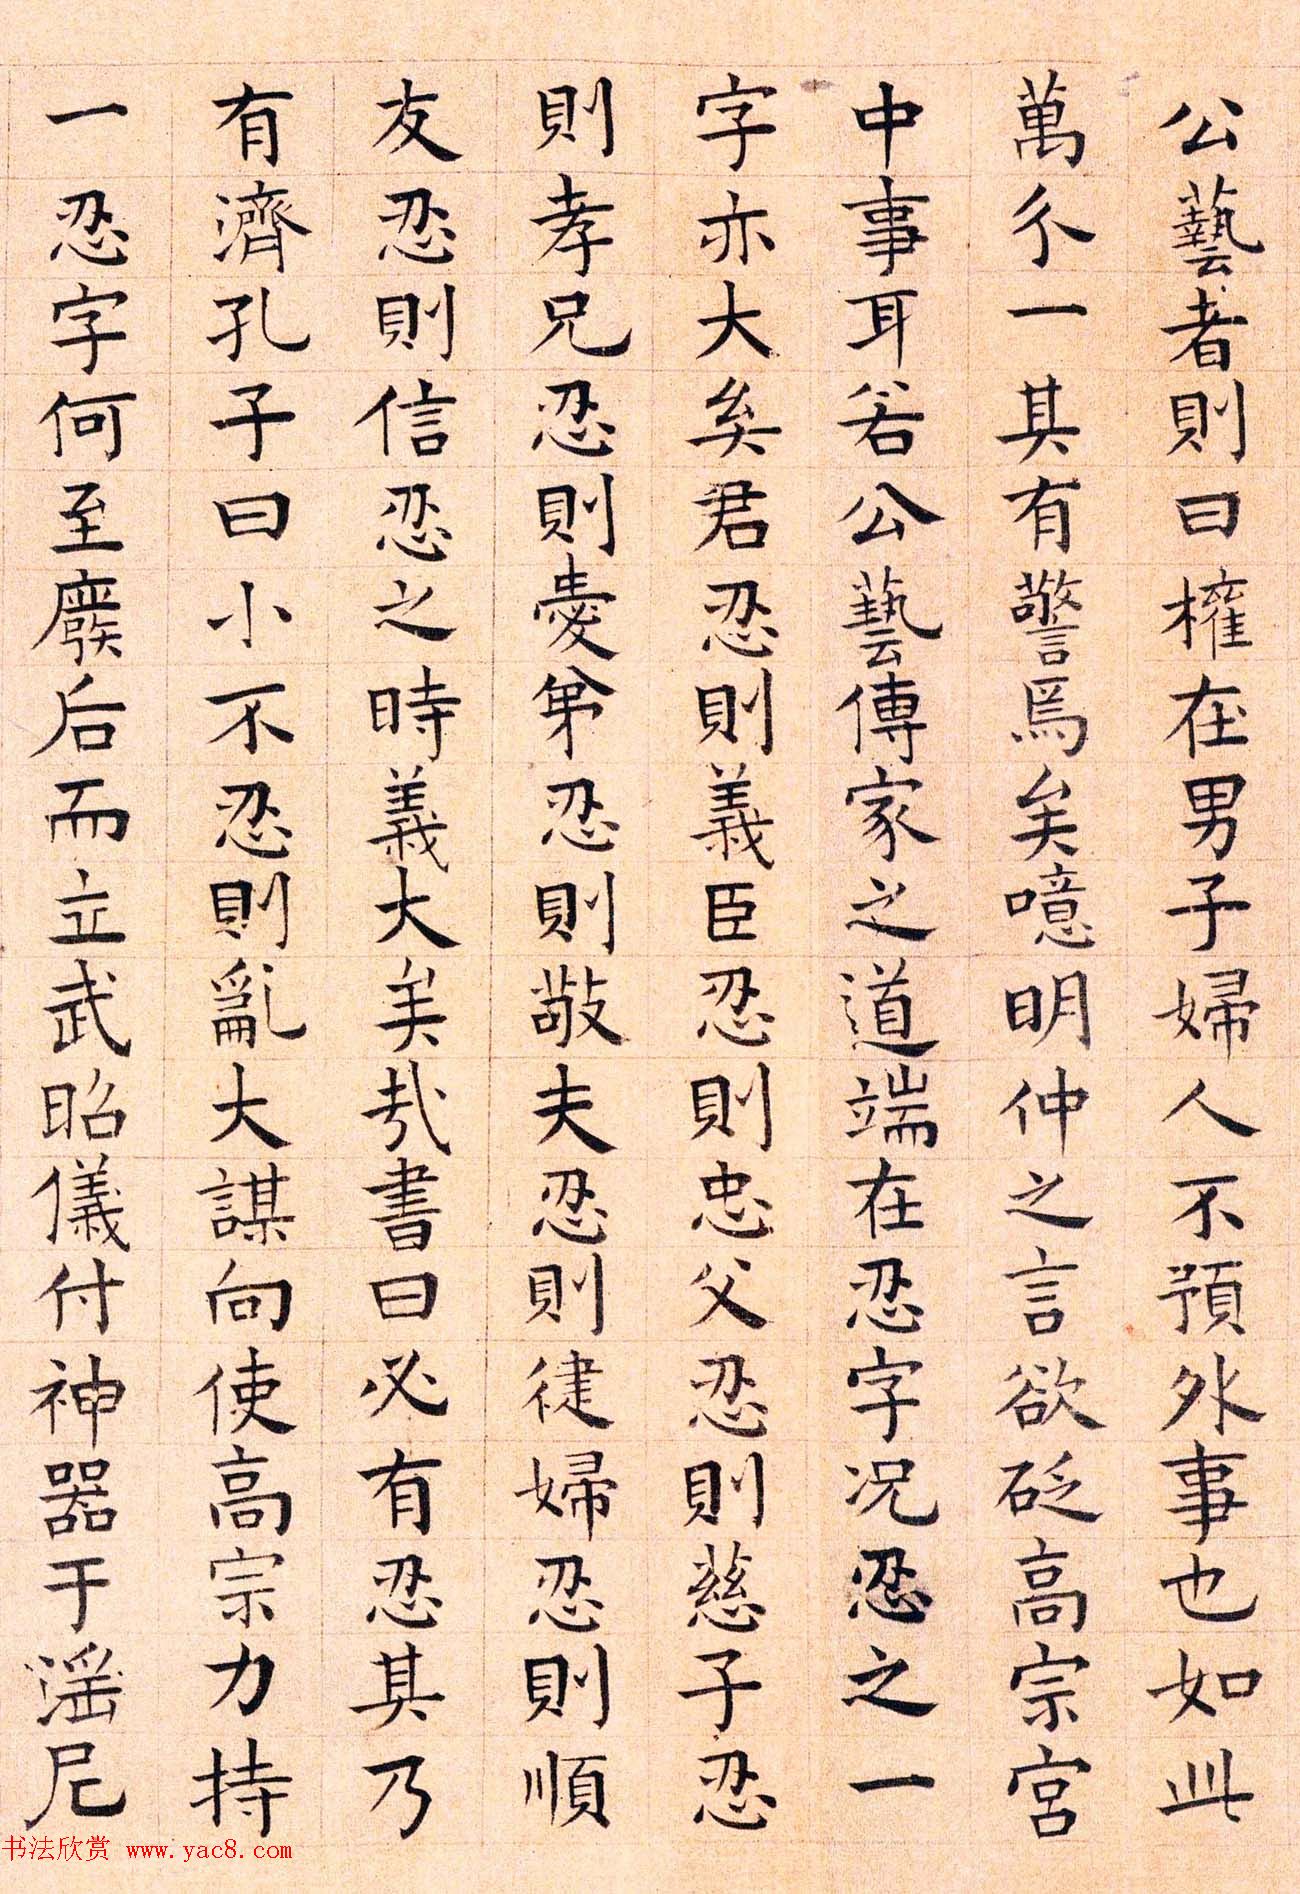 公藝者則曰權在男子婦人不預外事也如此
萬分一其有警焉矣噫明仲之言欲砭高宗宮
中事耳若公藝傳家之道端在忍字況忍之一
字亦大矣君忍則義臣忍則忠父忍則慈子忍
則孝兄忍則愛弟忍則敬夫忍則徤婦忍則順
友忍則信忍之時義大矣哉書曰必有忍其乃
有濟孔子曰小不忍則亂大謀向使高宗力持
一忍字何至廢后而立武昭儀付神器于滛尼
书法欣赏 www.yac8.com